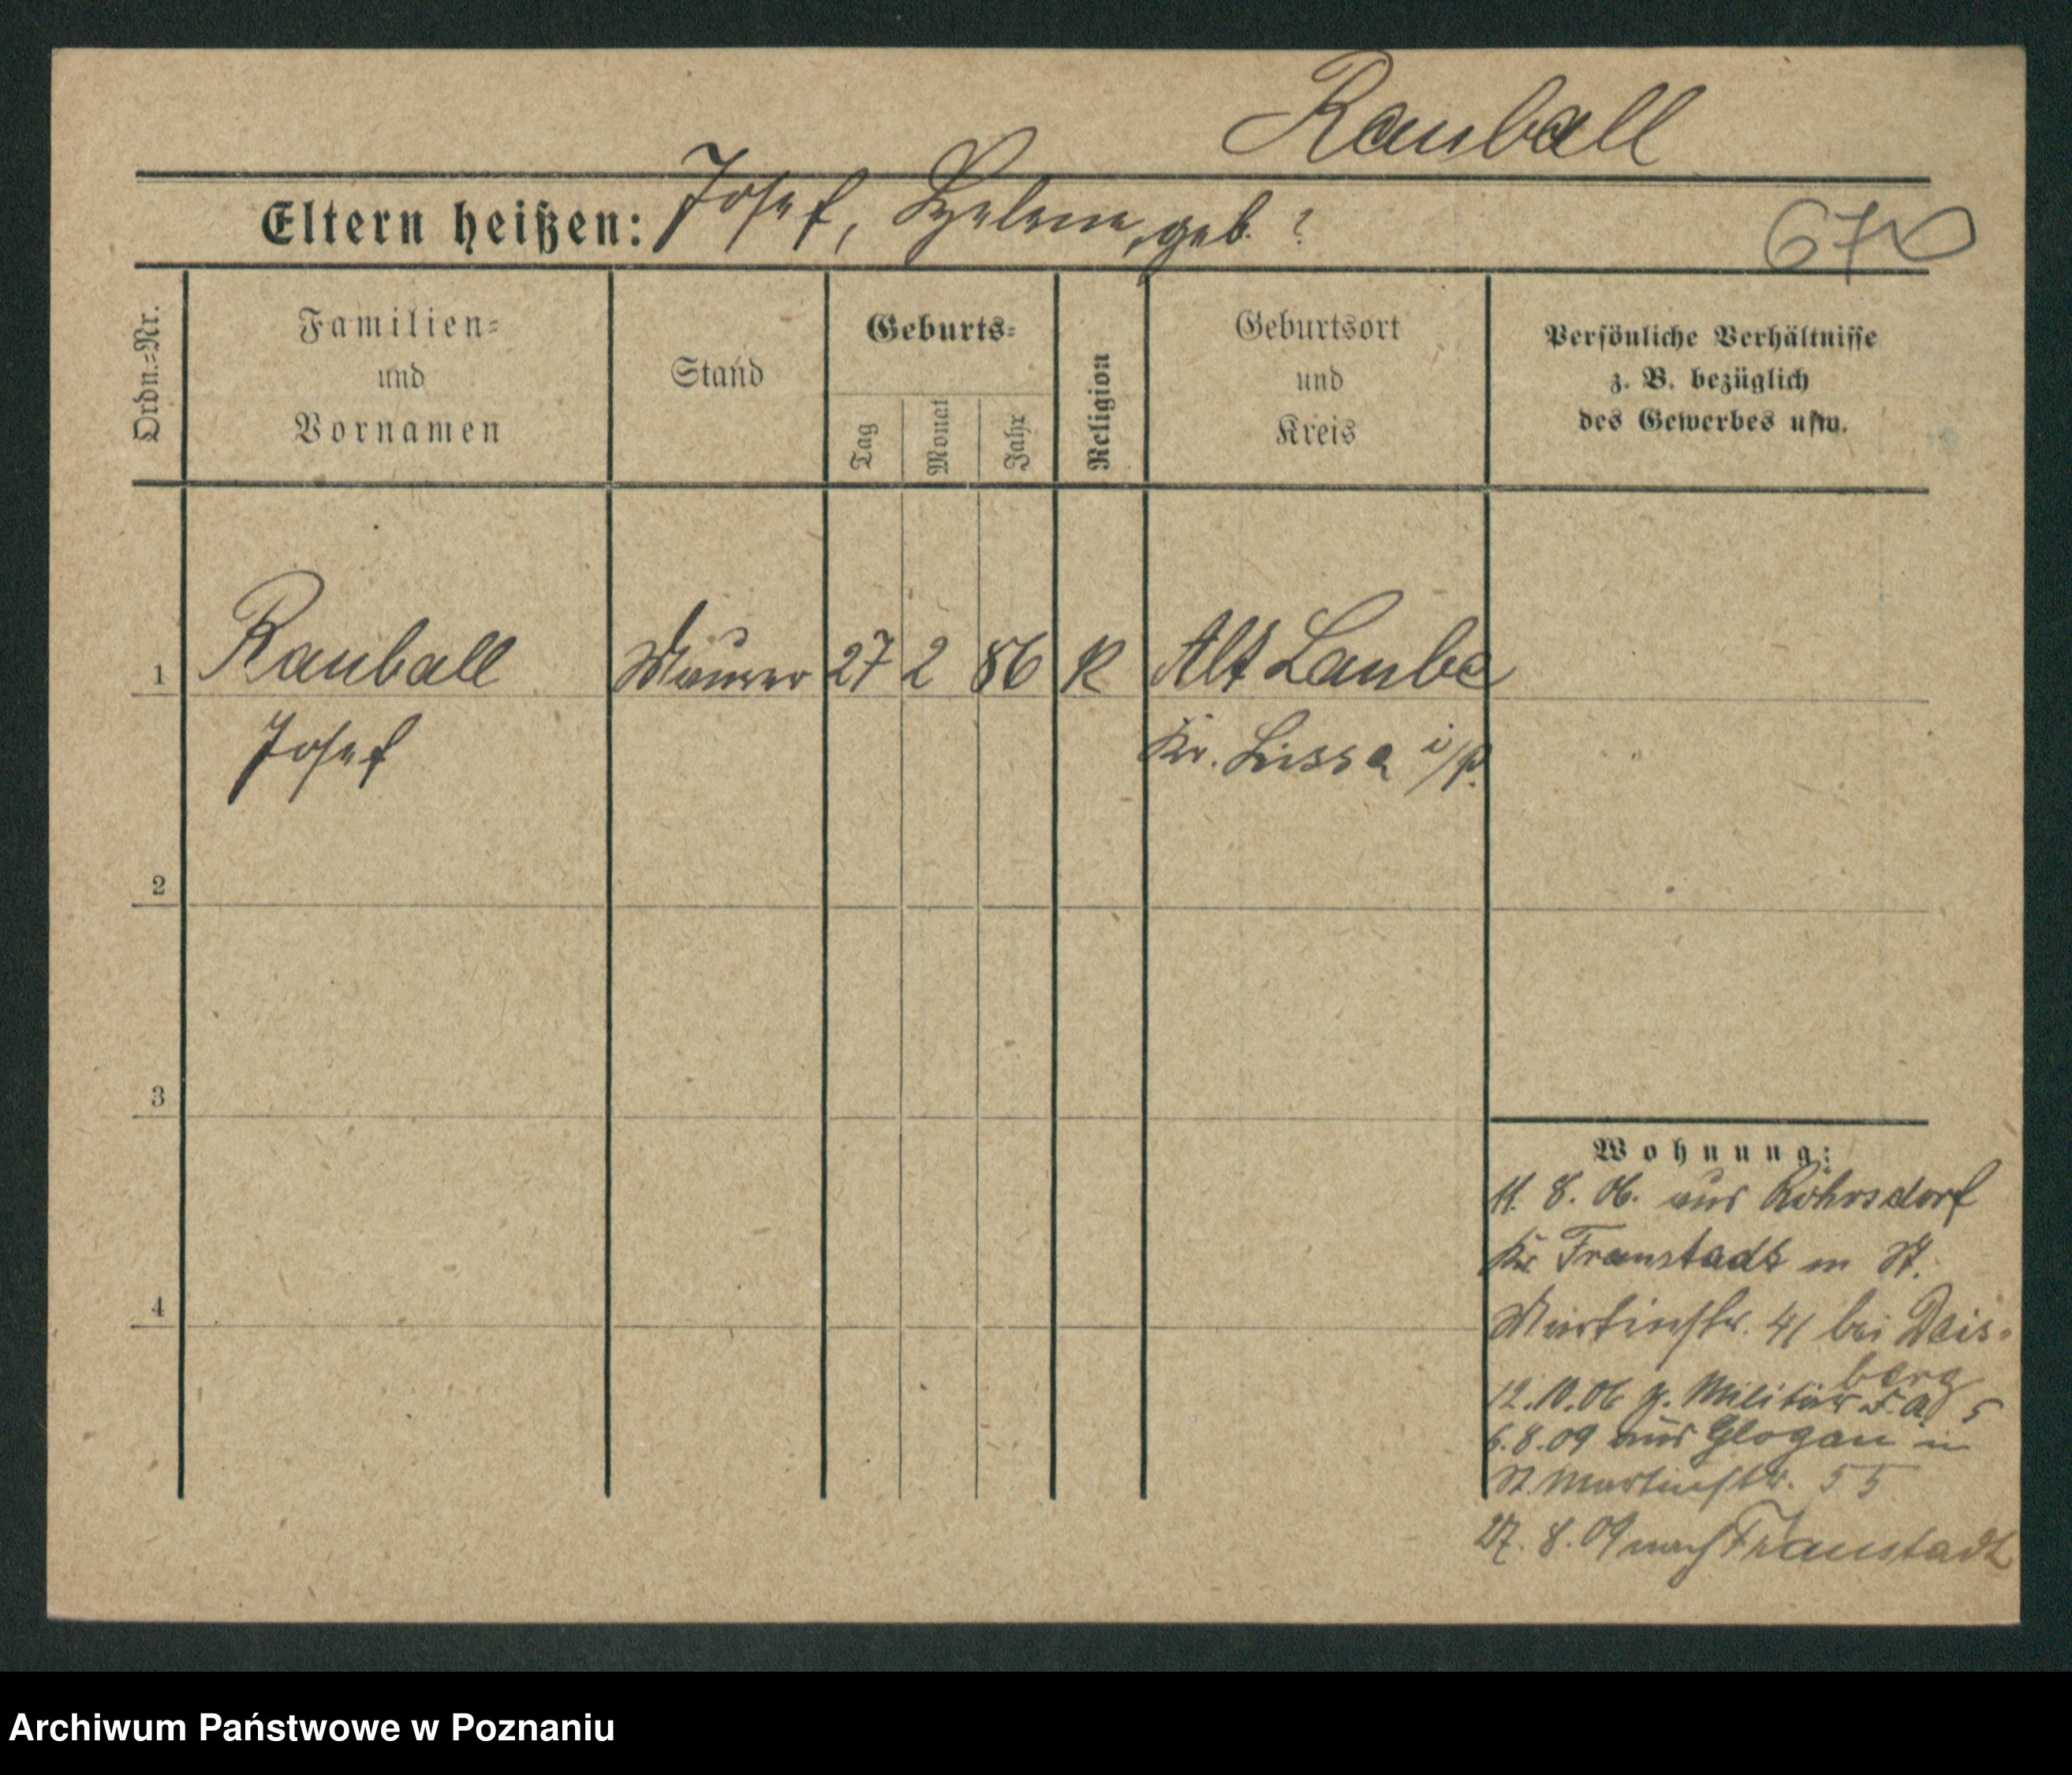 Rauball
Eltern heißen: Josef, Helene, geb. ?
67
Ordn.=Nr.
Familien=
und
Vornamen
Stand
Geburts=
Tag
Monat
Jahr
Religion
Geburtsort
und
Kreis
Persönliche Verhältnisse
z. B. bezüglich
des Gewerbes usw.
1 Rauball Maurer 27 2 86 K Alt Laube
Josef Kr. Lissa i/P.
2
3
4
Wohnung:
11. 8. 06. aus Röhrsdorf
Kr Fraustadt in St.
Martinstr. 41 bei Deis-
berg
12.10.06 z. Militär F. A. 5
6.8.09 aus Glogau in
St Martinstr. 55
27. 8. 09 nach Fraustadt
Archiwum Państwowe w Poznaniu